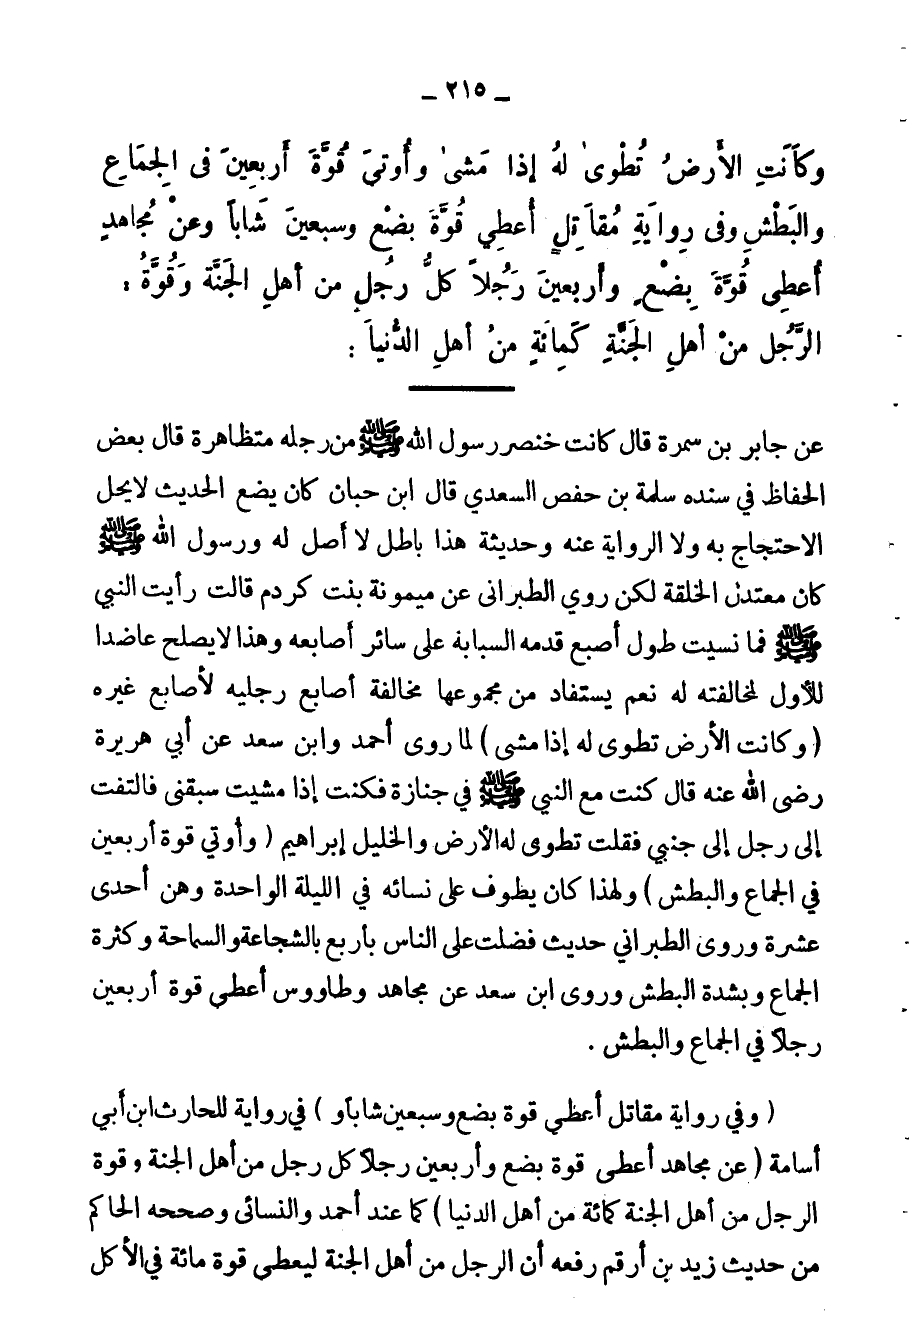 ـ ٢١٥ ـ
وكَانَتِ الأَرضُ تُطْوىٰ لهُ إذا مَشىٰ وأُوتيَ قُوَّةَ أَربعِينَ فى الجِمَاعِ
والبَطْشِ وفى رِوايَةِ مُقاتِلٍ أُعطِي قُوَّةَ بضْعٍ وسبعينَ شَاباً وعنْ مُجاهدٍ
أُعطِى قُوَّةَ بِضْعٍ وأربعينَ رَجُلاً كلُّ رجُلٍ من أهلِ الجَنَّة وَقُوَّةُ :
الرَّجُلِ منْ أهلِ الجَنَّةِ كَمِائَةٍ منْ أهلِ الدُّنياَ :
عن جابر بن سمرة قال كانت خنصر رسول الله ﷺ من رجله متظاهرة قال بعض
الحفاظ في سنده سلمة بن حفص السعدي قال ابن حبان كان يضع الحديث لايحل
الاحتجاج به ولا الرواية عنه وحديثة هذا باطل لا أصل له ورسول الله ﷺ
كان معتدل الخلقة لكن روي الطبرانى عن ميمونة بنت كردم قالت رأيت النبي
ﷺ فما نسيت طول أصبع قدمه السبابة على سائر أصابعه وهذا لايصلح عاضدا
للأول لمخالفته له نعم يستفاد من مجموعها مخالفة أصابع رجليه لأصابع غيره
( وكانت الأرض تطوى له إذا مشى ) لما روى أحمد وابن سعد عن أبي هريرة
رضى الله عنه قال كنت مع النبي ﷺ في جنازة فكنت إذا مشيت سبقنى فالتفت
إلى رجل إلى جنبي فقلت تطوى له الأرض والخليل إبراهيم ( وأوتي قوة أربعين
في الجماع والبطش ) ولهذا كان يطوف على نسائه في الليلة الواحدة وهن أحدى
عشرة وروى الطبراني حديث فضلت على الناس بأربع بالشجاعة والسماحة وكثرة
الجماع وبشدة البطش وروى ابن سعد عن مجاهد وطاووس أعطي قوة أربعين
رجلاً في الجماع والبطش .
( وفي رواية مقاتل أعطي قوة بضع وسبعين شاباً و ) في رواية للحارث ابن أبي
أسامة ( عن مجاهد أعطى قوة بضع وأربعين رجلاً كل رجل من أهل الجنة وقوة
الرجل من أهل الجنة كمائة من أهل الدنيا ) كما عند أحمد والنسائى وصححه الحاكم
من حديث زيد بن أرقم رفعه أن الرجل من أهل الجنة ليعطى قوة مائة في الأكل